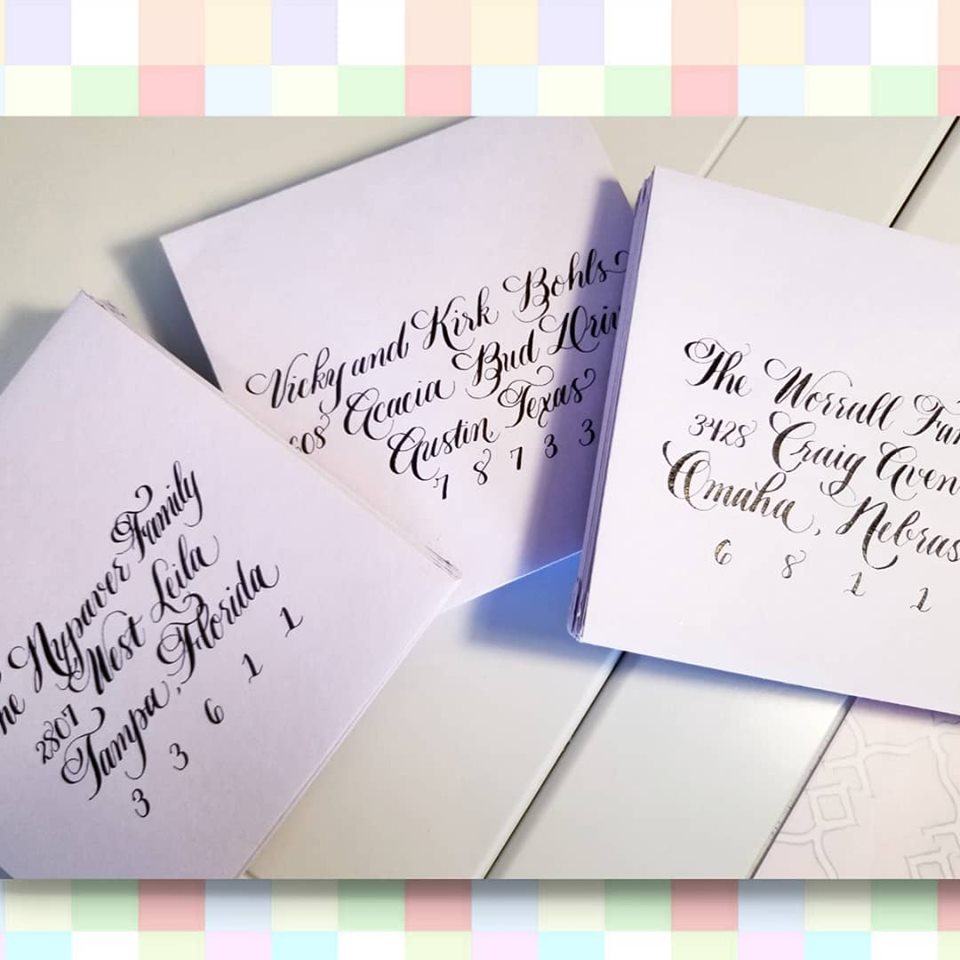 The Nypaver Family
2807 West Leila
Tampa, Florida
3 3 6 1 1
Vicky and Kirk Bohls
608 Acacia Bud Driv
Austin, Texas
7 8 7 3 3
The Worrull Fam
3428 Craig Aven
Omaha, Nebras
6 8 1 1